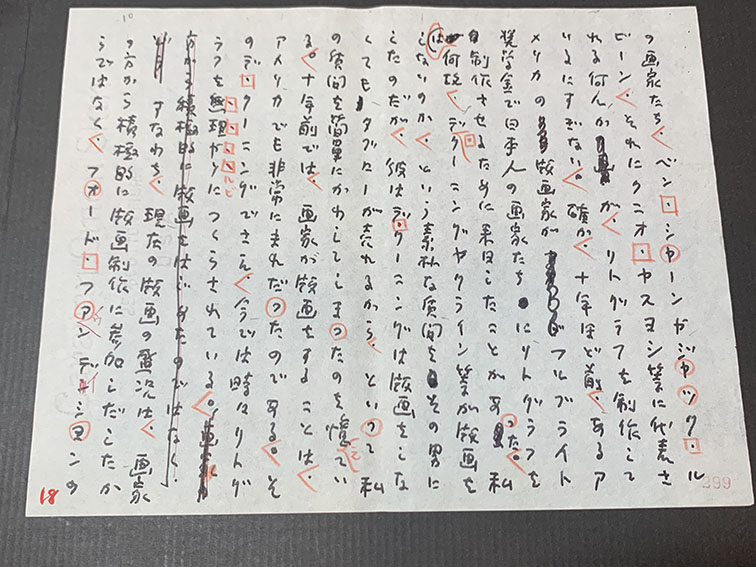 の画家たち、ベン・シャーンがジャック・ル
ビーン、それにクニオ・ヤスヨシ等に代表さ
れる何人かが、リトグラフを制作して
いるにすぎない。確か、十年ほど前、あるア
メリカの版画家がフルブライト
奨学金で日本人の画家たちにリトグラフを
制作させるために来日したことがあった。私
は何故、デクーニングやクライン等が版画を
しないのか、という素朴な質問をその男に
したのだが、彼はデクーニングは版画をしな
くてもタブローが売れるから、といって私
の質問を簡単にかわしてしまったのを憶えてい
る。十年前では、画家が版画をすることは、
アメリカでも非常にまれだったのである。そ
のデ・クーニングでさえ、今では時々リトグ
ラフを無理がりにつくらされている。
方から積極的に版画をはじめたのではなく、
すなわち、現在の版画の盛況は、画家
の方から積極的に版画制作に参加しだしたか
らではなく、フォード・ファンデーションの
18
299